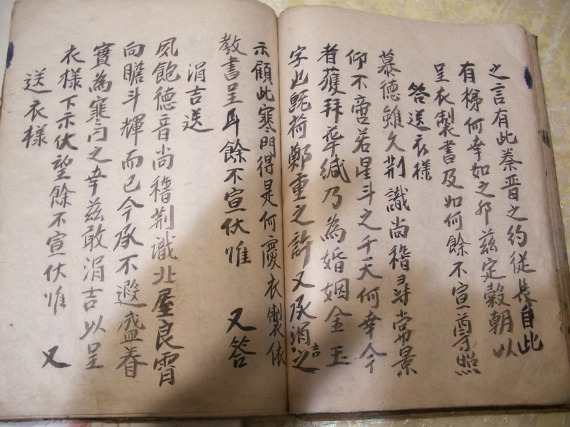 之言有此秦晉之約從長自此
有梯何幸如之卯茲定穀朝以
呈衣製書及如何餘不宣尊照
答送衣樣
慕德雖久荆識尚稽尋常景
仰不啻若星斗之于天何幸今
者獲拜華緘乃為婚姻金玉
字也旣荷鄭重之許又承涓吉之
示顧此寒門得是何慶衣製依
教書呈耳餘不宣伏惟 又答
涓吉送
夙飽德音尚稽荆識北屋良宵
向瞻斗輝而已今承不遐盛眷
實為寒門之幸茲敢涓吉以呈
衣樣下示伏望餘不宣伏惟 又
送衣樣